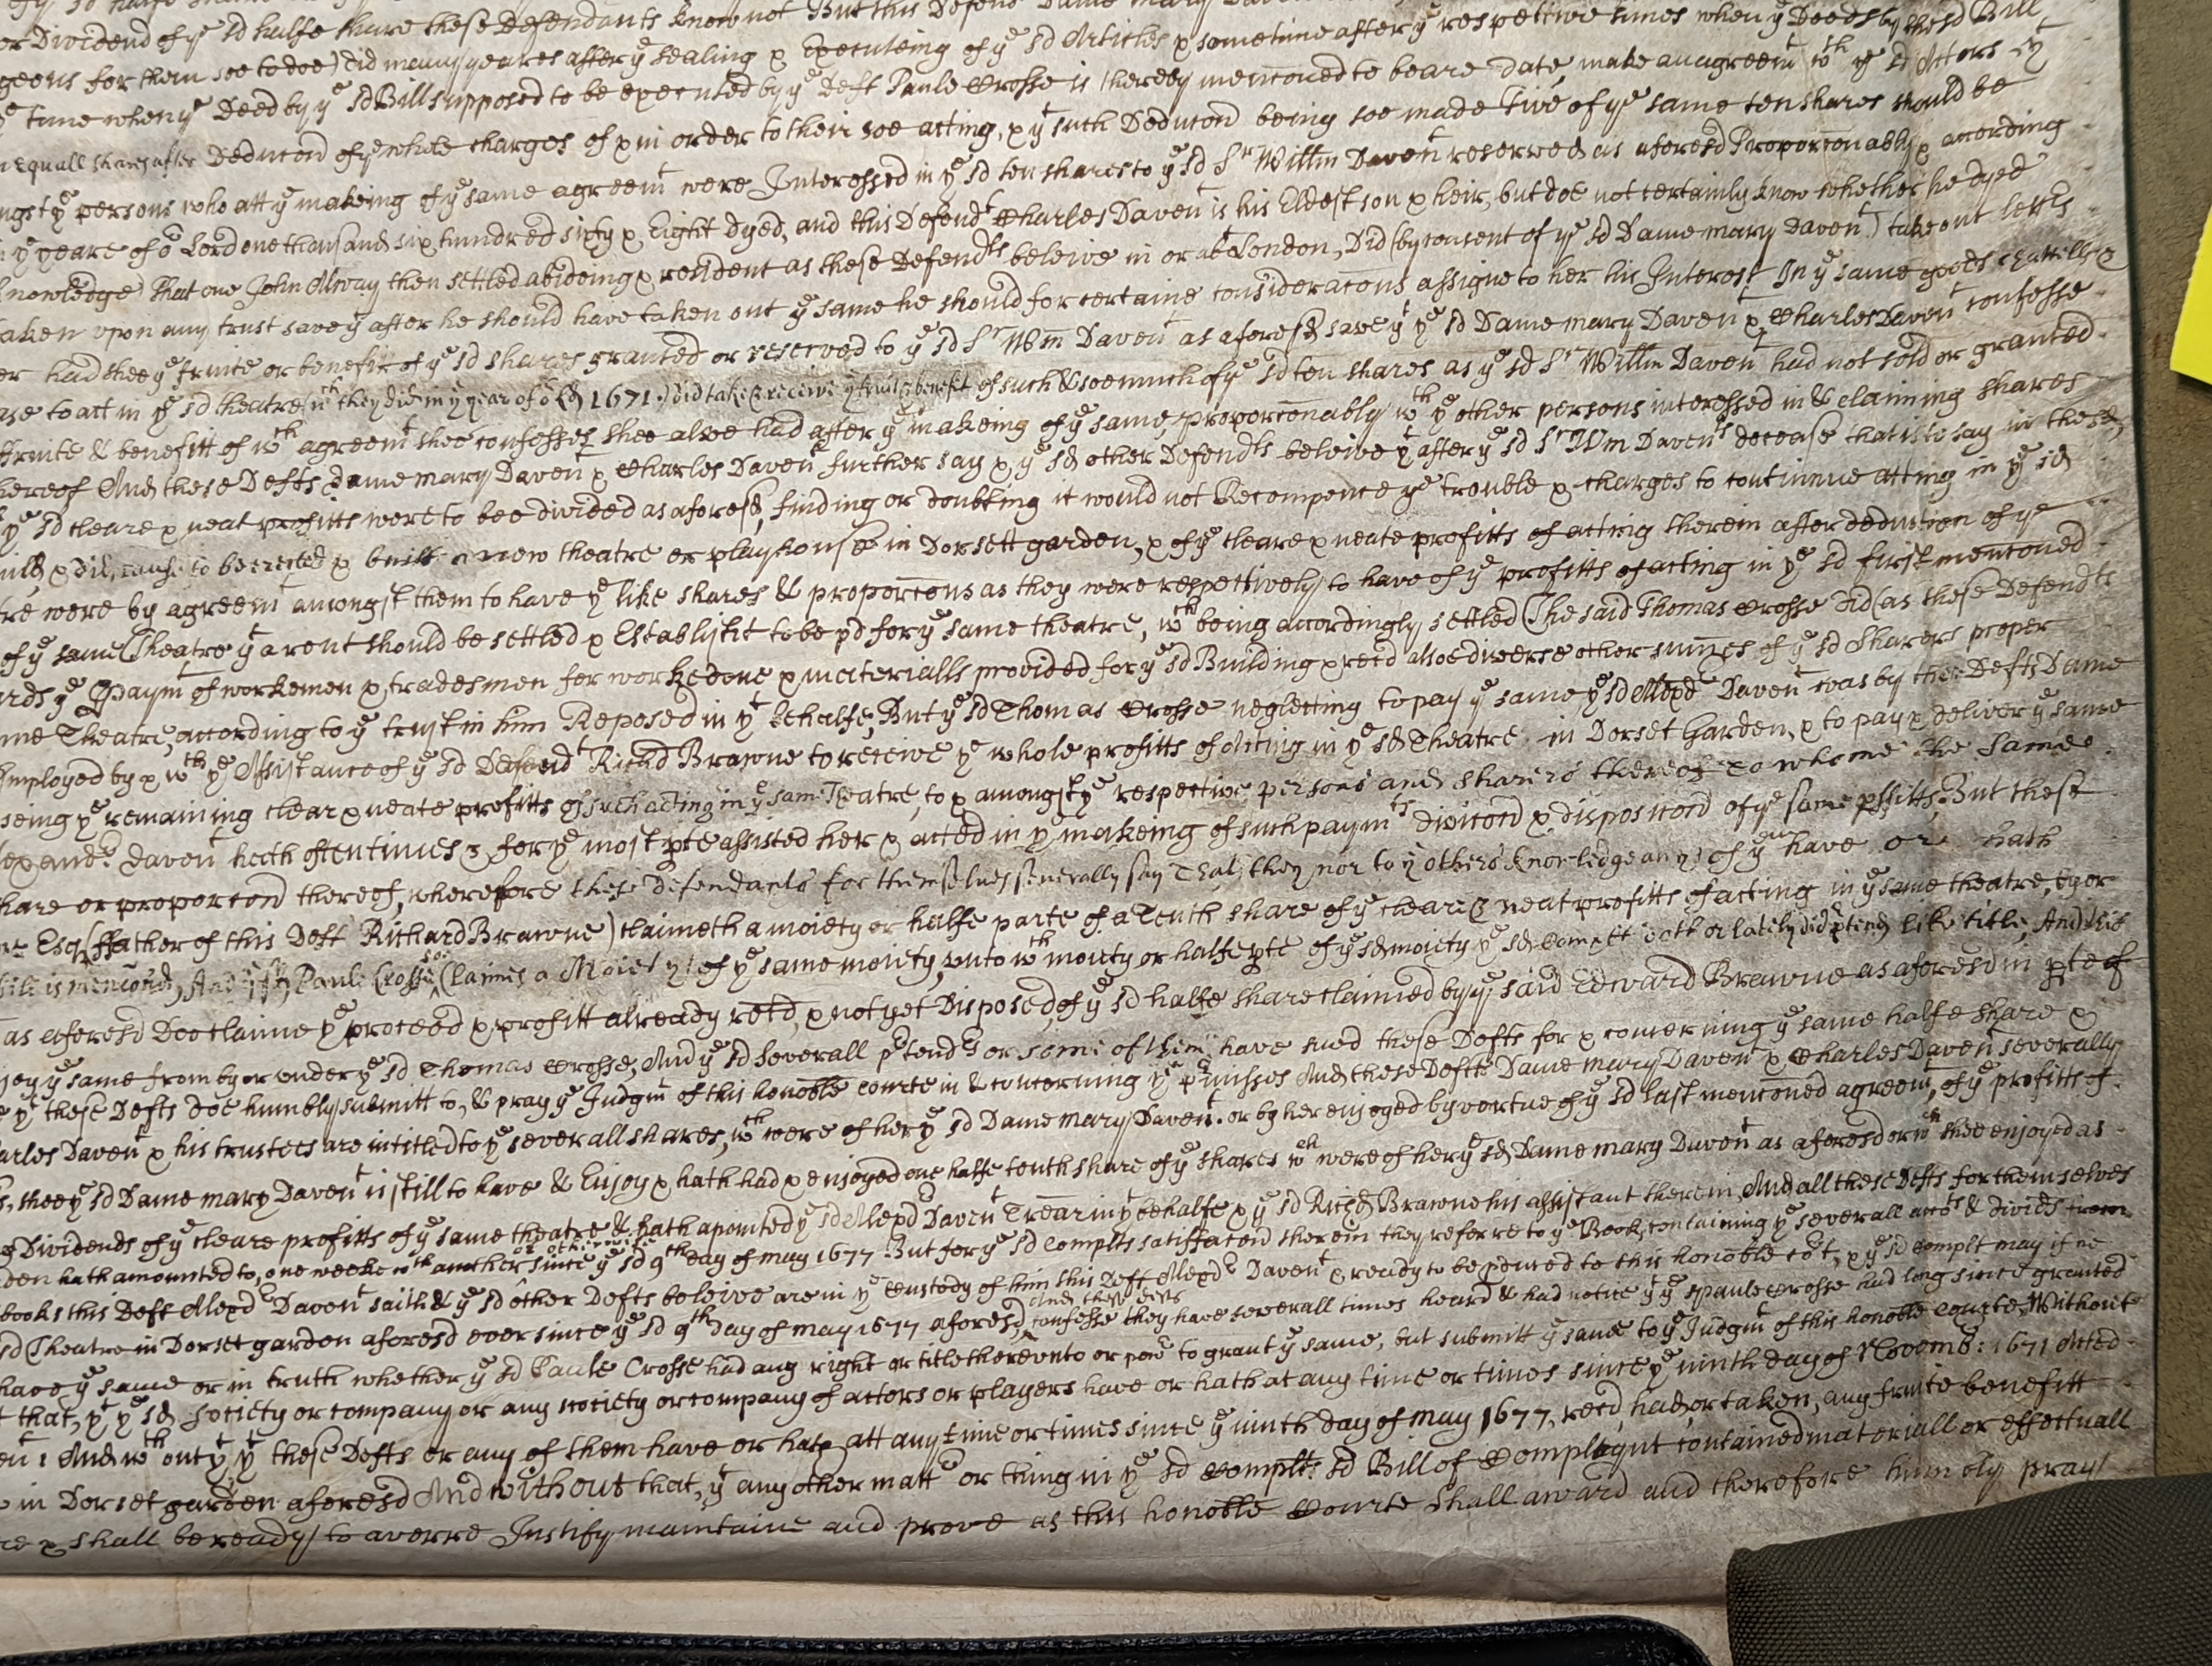 or Dividend of ye sd halfe share these Defendants know not But this Defend Dame Mary
geons for them soe to doe) did many yeares after ye sealing & Executeing of ye sd Articles & sometime after ye respective times when ye Deeds by the sd Bill
ye time when ye Deed by ye sd Bill supposed to be executed by ye Deft Paule Crosse is thereby menc̄oned to beare Date, make an agreemt wth ye sd Actors yt
equall shares after Deducc̄on of ye whole charges of & in order to their soe acting, & yt such Deducc̄on being soe made Five of ye same ten shares should be
ngst ye persons who att ye makeing of ye same agreemt were Interessed in ye sd ten shares to ye sd Sr Willm̄ Davent reserved as aforesd Proporc̄onably & according
ye yeare of or Lord one thousand six hundred sixty & Eight dyed, and this Defendt Charles Davent is his Eldest son & heir, but doe not certainly know whether he dyed
knowledge) that one John Alway then settled abideing & resident as these Defendts beleive in or att London, Did (by consent of ye sd Dame mary Davent) take out letters
aken upon any trust save yt after he should have taken out ye same he should for certaine considerac̄ons assigne to her his Interest In ye same goods chattells &
er had shee ye fruite or benefitt of ye sd shares granted or reserved to ye sd Sr Wm̄ Davent as aforesd save yt ye sd Dame mary Davent & Charles Davent confesse
to act in ye sd theatre (wch they did in ye year of or Ld 1671) did take & receive ye fruit & benefit of such & soe much of ye sd ten shares as ye sd Sr Willm Davent had not sold or granted
ffruite & benefitt of wch agreemt shee confesses shee alsoe had after ye makeing of ye same, proporc̄onably wth ye other persons interessed in & claiming shares
hereof And these Defts Dame mary Davent & Charles Davent further say & ye sd other Defendts beleive yt after ye sd Sr Wm Davents decease that is to say in these
ye sd cleare & neat profitts were to bee divided as aforesd, finding or doubting it would not Recompence ye trouble & charges to continnue acting in ye sd
& did cause to be erected & built a new theatre or playhouse in Dorsett garden, & of ye cleare & neate profitts of acting therein after deduction of ye
re were by agreemt amongst them to have ye like shares & proporc̄ons as they were respectively to have of ye profitts of acting in ye sd first menc̄oned
of ye same Theatre yt a rent should be settled & Establisht to be pd for ye same theatre, wch being accordingly settled (The said Thomas Crosse did (as these Defendts
ards ye Paymt of workemen & tradesmen for worke done & materialls provided for ye sd Building & recd alsoe diverse other sum̄es of ye sd Sharers proper
me Theatre, according to ye trust in him Reposed in yt behalfe, But ye sd Thomas Crosse neglecting to pay ye same ye sd Alexdr Davent was by these Defts Dame
Employed by & wth ye Assistance of ye sd Defend Richd Brawne to receive ye whole profitts of Acting in ye sd Theatre in Dorset Garden, & to pay & deliver ye same
seing ye remaining clear & neate profitts of such acting in ye same Theatre, to & amongst ye respective persons and sharers thereof to whome the same
lexandr Davent hath oftentimes & for ye most pte assisted her & acted in ye makeing of such paymts divic̄ond & disposic̄ond of ye same pffitts, But these
hare or proporc̄ond thereof, wherefore these defendants for themselves severally say That they nor to ye others knowledge any of ym have or hath
Esqr (ffather of this Deft Richard Brawne) claimeth a moiety or halfe parte of a Tenth share of ye cleare & neat profitts of acting in ye same theatre, by or
Bill is menc̄oned, And ye sd Paule Crosse (Claimes a Moiety) of ye same moiety, unto wch moiety or halfe pte of ye sd moiety ye sd Complt doth or lately did ptend like title, And this
as aforesd Doe claime ye proceed & profitt already recd, & not yet Disposed, of ye sd halfe share claimed by ye said Edward Brawne as aforesd in pte of
joy ye same from by or under ye sd Thomas Crosse, And ye sd severall ptendrs or some of them have sued these Defts for & concerning ye same halfe share &
yt these Defts doe humbly submitt to, & pray ye Judgmt of this honoble courte in & concerning ye pmisses And these Defts Dame mary Davent & Charles Davent severally
arles Davent & his trustees are intitled to ye severall shares, wch were of her ye sd Dame mary Davent. or by her enjoyed by vertue of ye sd last menc̄oned agreemt, of ye profitts of
s, shee ye sd Dame mary Davent is still to have & Enjoy & hath had & enjoyed one halfe tenth share of ye shares wch were of her ye sd Dame mary Davent as aforesd or wch shee enjoyed as
g Dividends of ye cleare profitts of ye same theatre & hath apointed ye sd Alexdr Davent Trearer in yt behalfe & ye sd Richd Brawne his assistant therein, And all these Defts for themselves
den hath amounted to, one weeke wth another or otherwise since ye sd 9th day of may 1677 But for ye sd Complts satisfacc̄ond therein they referre to ye Book, containing ye severall accots & divids
books this Deft Alexdr Davent saith & ye sd other Defts beleive are in ye Custody of him this Deft Alexdr Davent & ready to be pduced to this honoble cort, & ye sd Complt may if he
sd Theatre in Dorset garden aforesd ever since ye sd 9th Day of may 1677 aforesd, And these Defts confesse they have severall times heard & had notice yt ye sd Paule Crosse had long since granted
have ye same or in truth whether ye sd Paule Crosse had any right or title thereunto or power to grant ye same, but submitt ye same to ye Judgmt of this honoble Courte, Without
that, yt ye sd society or company or any society or company of actors or players have or hath at any time or times since ye ninth day of Novembr: 1671 Acted
And wthout yt yt these Defts or any of them have or hath att any time or times since ye ninth day of May 1677, recd, had, or taken, any fruite benefitt
in Dorset garden aforesd And without that, yt any other mattr or thing in ye sd Complts sd Bill of Complaynt contained materiall or effectuall
& shall be ready to averre Justify maintaine and prove as this honoble Courte shall award and therefore humbly pray